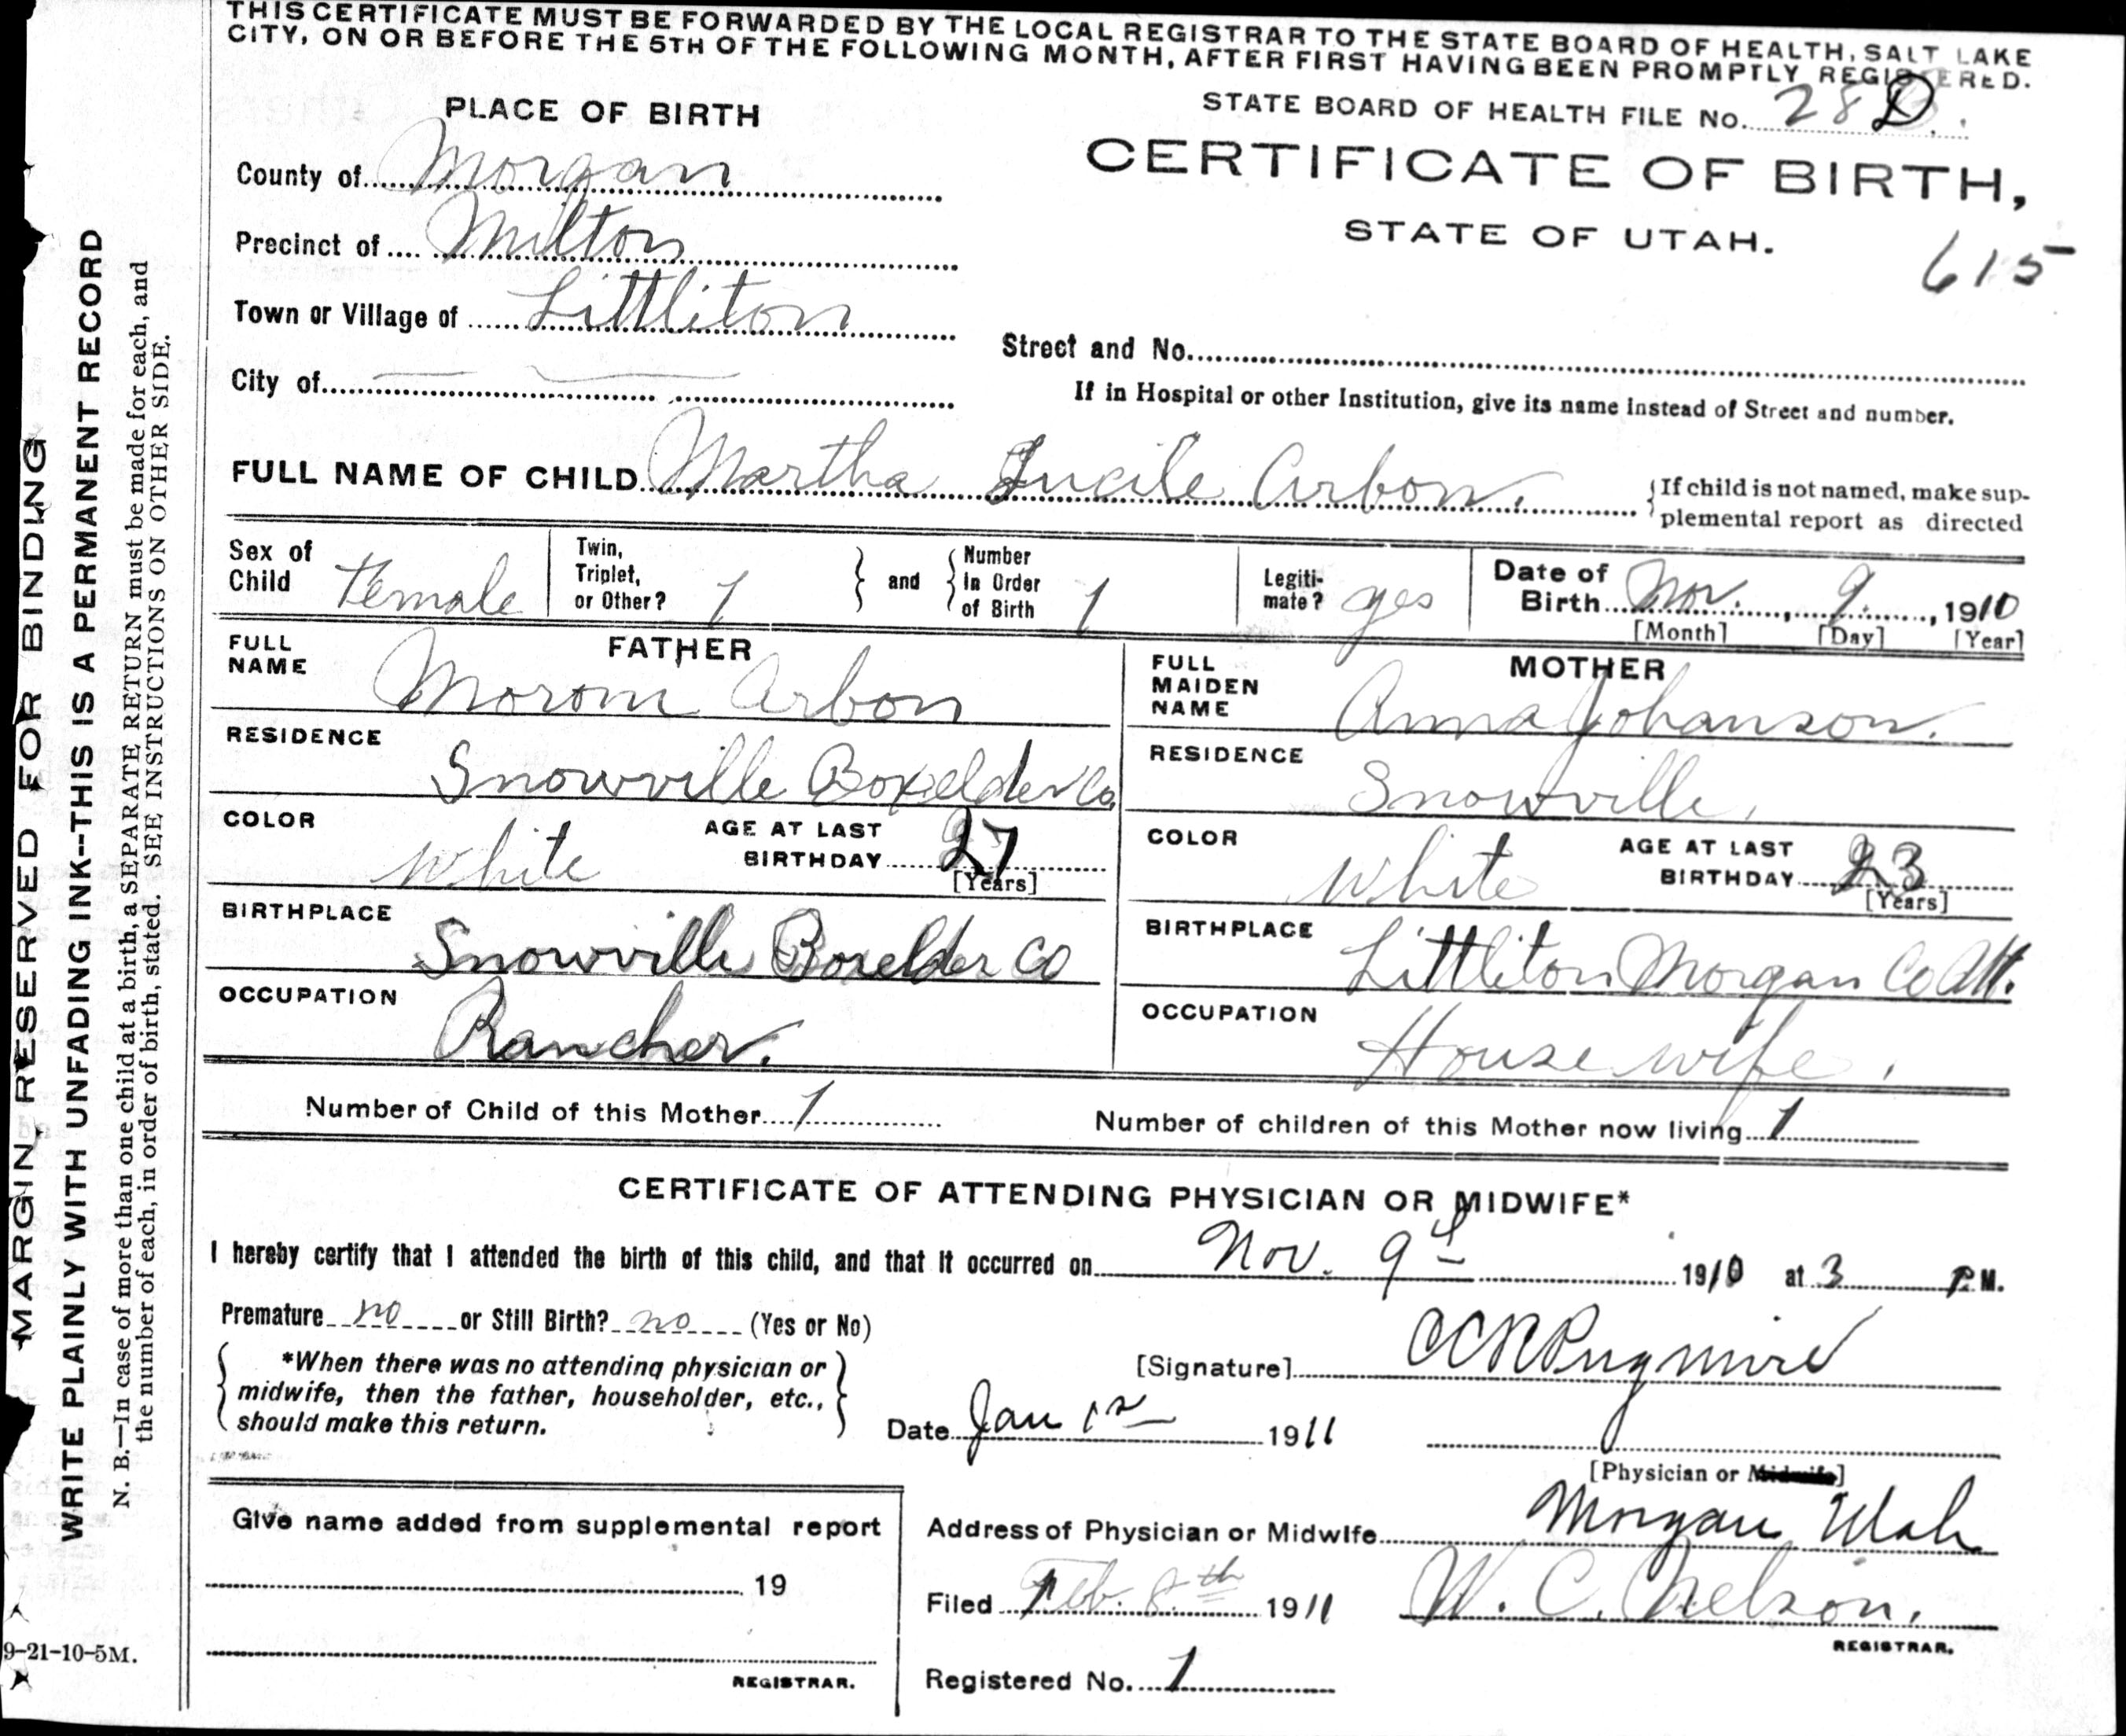 THIS CERTIFICATE MUST BE FORWARDED BY THE LOCAL REGISTRAR TO THE STATE BOARD OF HEALTH, SALT LAKE
CITY, ON OR BEFORE THE 5TH OF THE FOLLOWING MONTH, AFTER FIRST HAVING BEEN PROMPTLY REGISTERED.
STATE BOARD OF HEALTH FILE No. 28 D.
CERTIFICATE OF BIRTH,
STATE OF UTAH.
615
PLACE OF BIRTH
County of Morgan
Precinct of Milton
Town or Village of Littliton
City of
Street and No.
If in Hospital or other Institution, give its name instead of Street and number.
FULL NAME OF CHILD Martha Lucile Arbon.
If child is not named, make sup-
plemental report as directed
Sex of Child Female
Twin, Triplet, or Other? 1
and
Number in Order of Birth 1
Legiti-mate? yes
Date of Birth Nov. 9. 1910
[Month] [Day] [Year]
FATHER
FULL NAME Moroni Arbon
RESIDENCE Snowville Boxelder Co.
COLOR White AGE AT LAST BIRTHDAY 27
[Years]
BIRTHPLACE Snowville Boxelder Co
OCCUPATION Rancher.
MOTHER
FULL MAIDEN NAME Anna Johanson.
RESIDENCE Snowville.
COLOR White AGE AT LAST BIRTHDAY 23
[Years]
BIRTHPLACE Littliton Morgan Co Ut.
OCCUPATION House wife.
Number of Child of this Mother 1 Number of children of this Mother now living 1
CERTIFICATE OF ATTENDING PHYSICIAN OR MIDWIFE*
I hereby certify that I attended the birth of this child, and that it occurred on Nov. 9th 1910 at 3 P.M.
Premature no or Still Birth? no (Yes or No)
*When there was no attending physician or
midwife, then the father, householder, etc.,
should make this return.
[Signature] CCR Pugmire
Date Jan 1st 1911
[Physician or Midwife]
Give name added from supplemental report
19
REGISTRAR.
Address of Physician or Midwife Morgan Utah
Filed Feb. 8th 1911 W. C. Nelson.
REGISTRAR.
Registered No. 1
MARGIN RESERVED FOR BINDING
WRITE PLAINLY WITH UNFADING INK--THIS IS A PERMANENT RECORD
N. B.—In case of more than one child at a birth, a SEPARATE RETURN must be made for each, and
the number of each, in order of birth, stated. SEE INSTRUCTIONS ON OTHER SIDE.
9-21-10-5M.